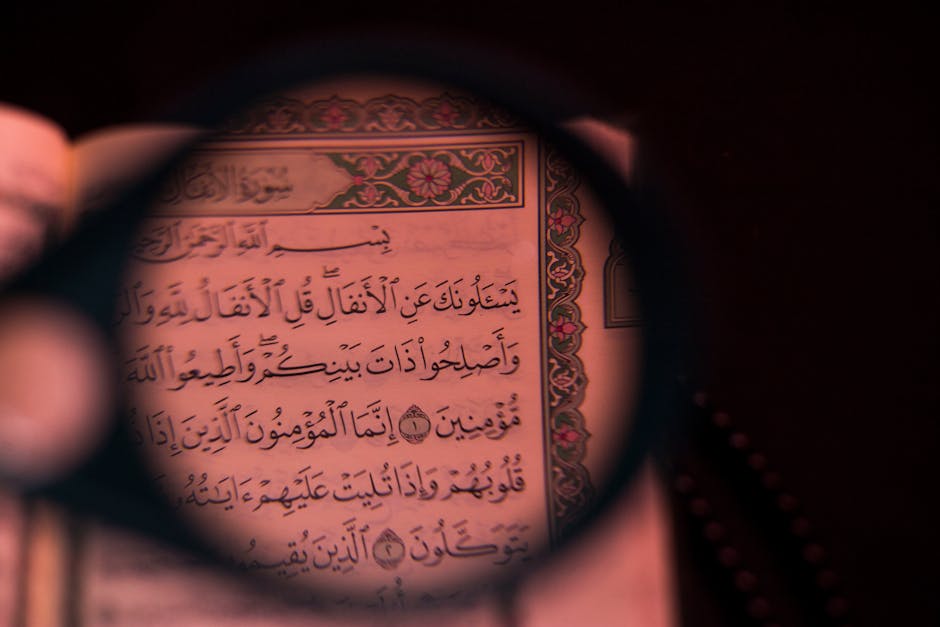 سُورَةُ الأَنفَالِ
بِسْمِ ٱللَّهِ ٱلرَّحْمَٰنِ
يَسْـَٔلُونَكَ عَنِ ٱلْأَنفَالِۖ قُلِ ٱلْأَنفَالُ لِلَّهِ
وَأَصْلِحُوا۟ ذَاتَ بَيْنِكُمْۖ وَأَطِيعُوا۟ ٱللَّهَ
مُّؤْمِنِينَ ١ إِنَّمَا ٱلْمُؤْمِنُونَ ٱلَّذِينَ إِذَا
قُلُوبُهُمْ وَإِذَا تُلِيَتْ عَلَيْهِمْ ءَايَٰتُهُۥ
يَتَوَكَّلُونَ ٢ ٱلَّذِينَ